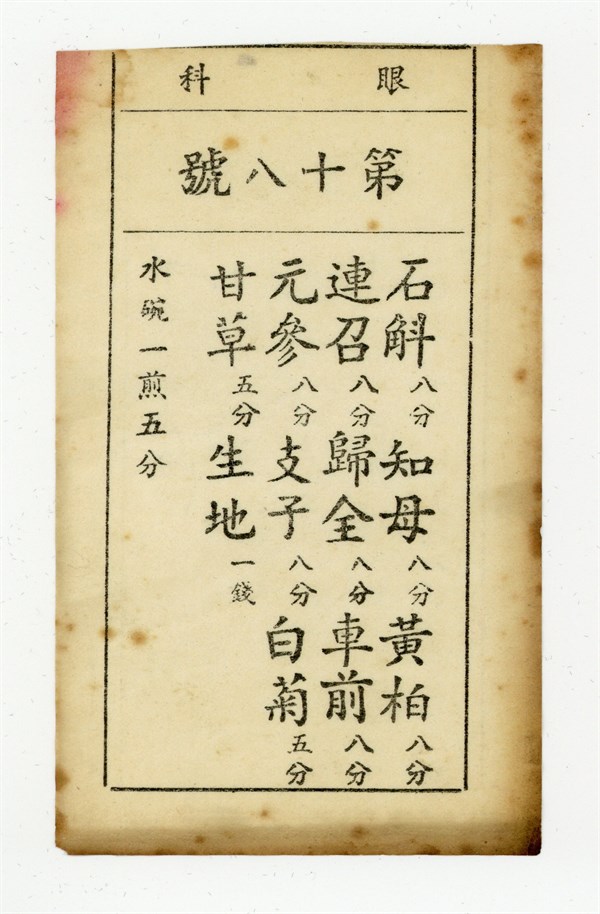 眼科
第十八號
石斛八分知母八分黃柏八分
連召八分歸全八分車前八分
元參八分支子八分白菊五分
甘草五分生地一錢
水碗一煎五分